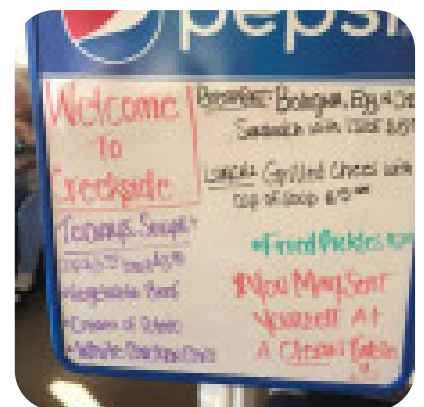 pepsi
Welcome
to
Creekside
Todays Soups
Vegetable Beef
Cream of
White Chicken Chili
Breakfast: Bologna, Egg &
Sandwich with
Lunch: Grilled Cheese with
cup of soup
Fried Pickles
You May Seat
Yourself At
A Clean Table